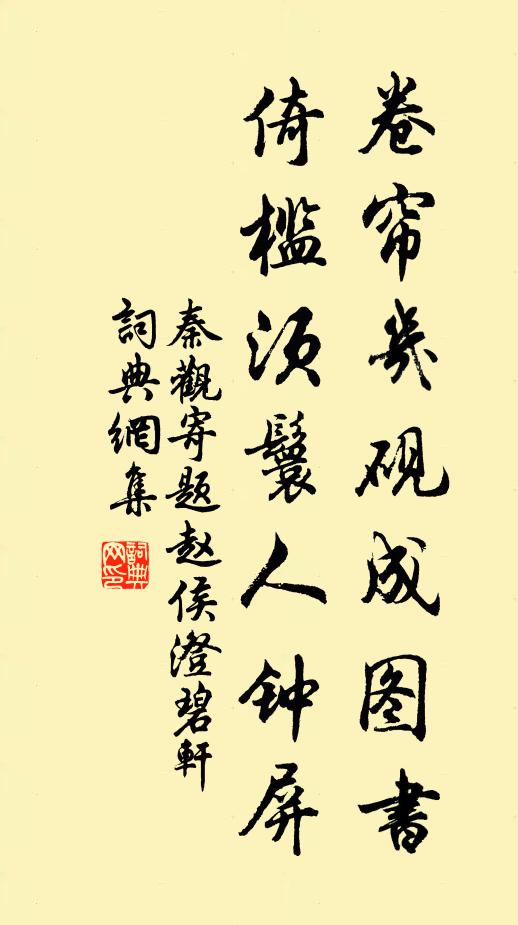 卷帘幾砚成图書
倚槛须鬟人钟屏
秦觀寄题赵侯澄碧軒
詞典網集
詞典网印